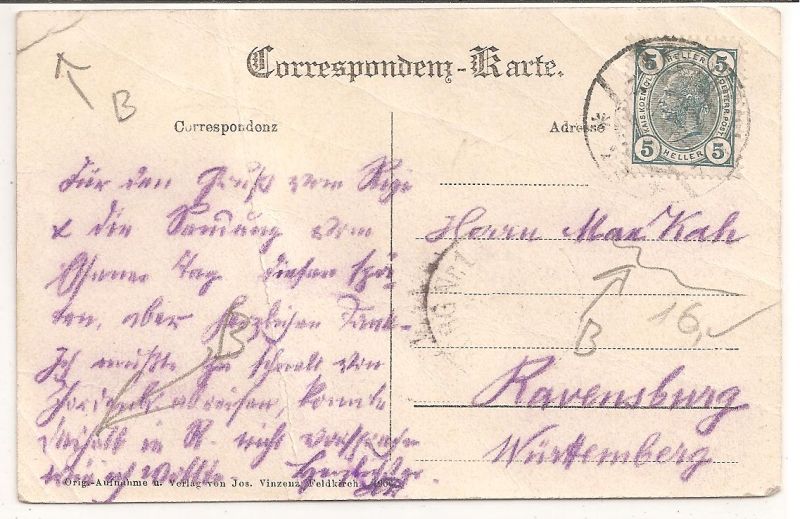 Correspondenz-Karte.
Correspondenz
Adresse
5 HELLER 5
KAIS. KOENIGL.
OESTERR. POST.
5 HELLER 5
B
Für den Gruß vom Rigi
& die Sendung vom
Tag diesen spä-
ten, aber herzlichen Dank.
Ich mußte zu schnell von
abreisen, konnte
deshalb in R. nicht vorsprechen
wie ich wollte.
Herrn Max Kah
B
16,-
B
Ravensburg
Württemberg
Orig.-Aufnahme u. Verlag von Jos. Vinzenz Feldkirch.